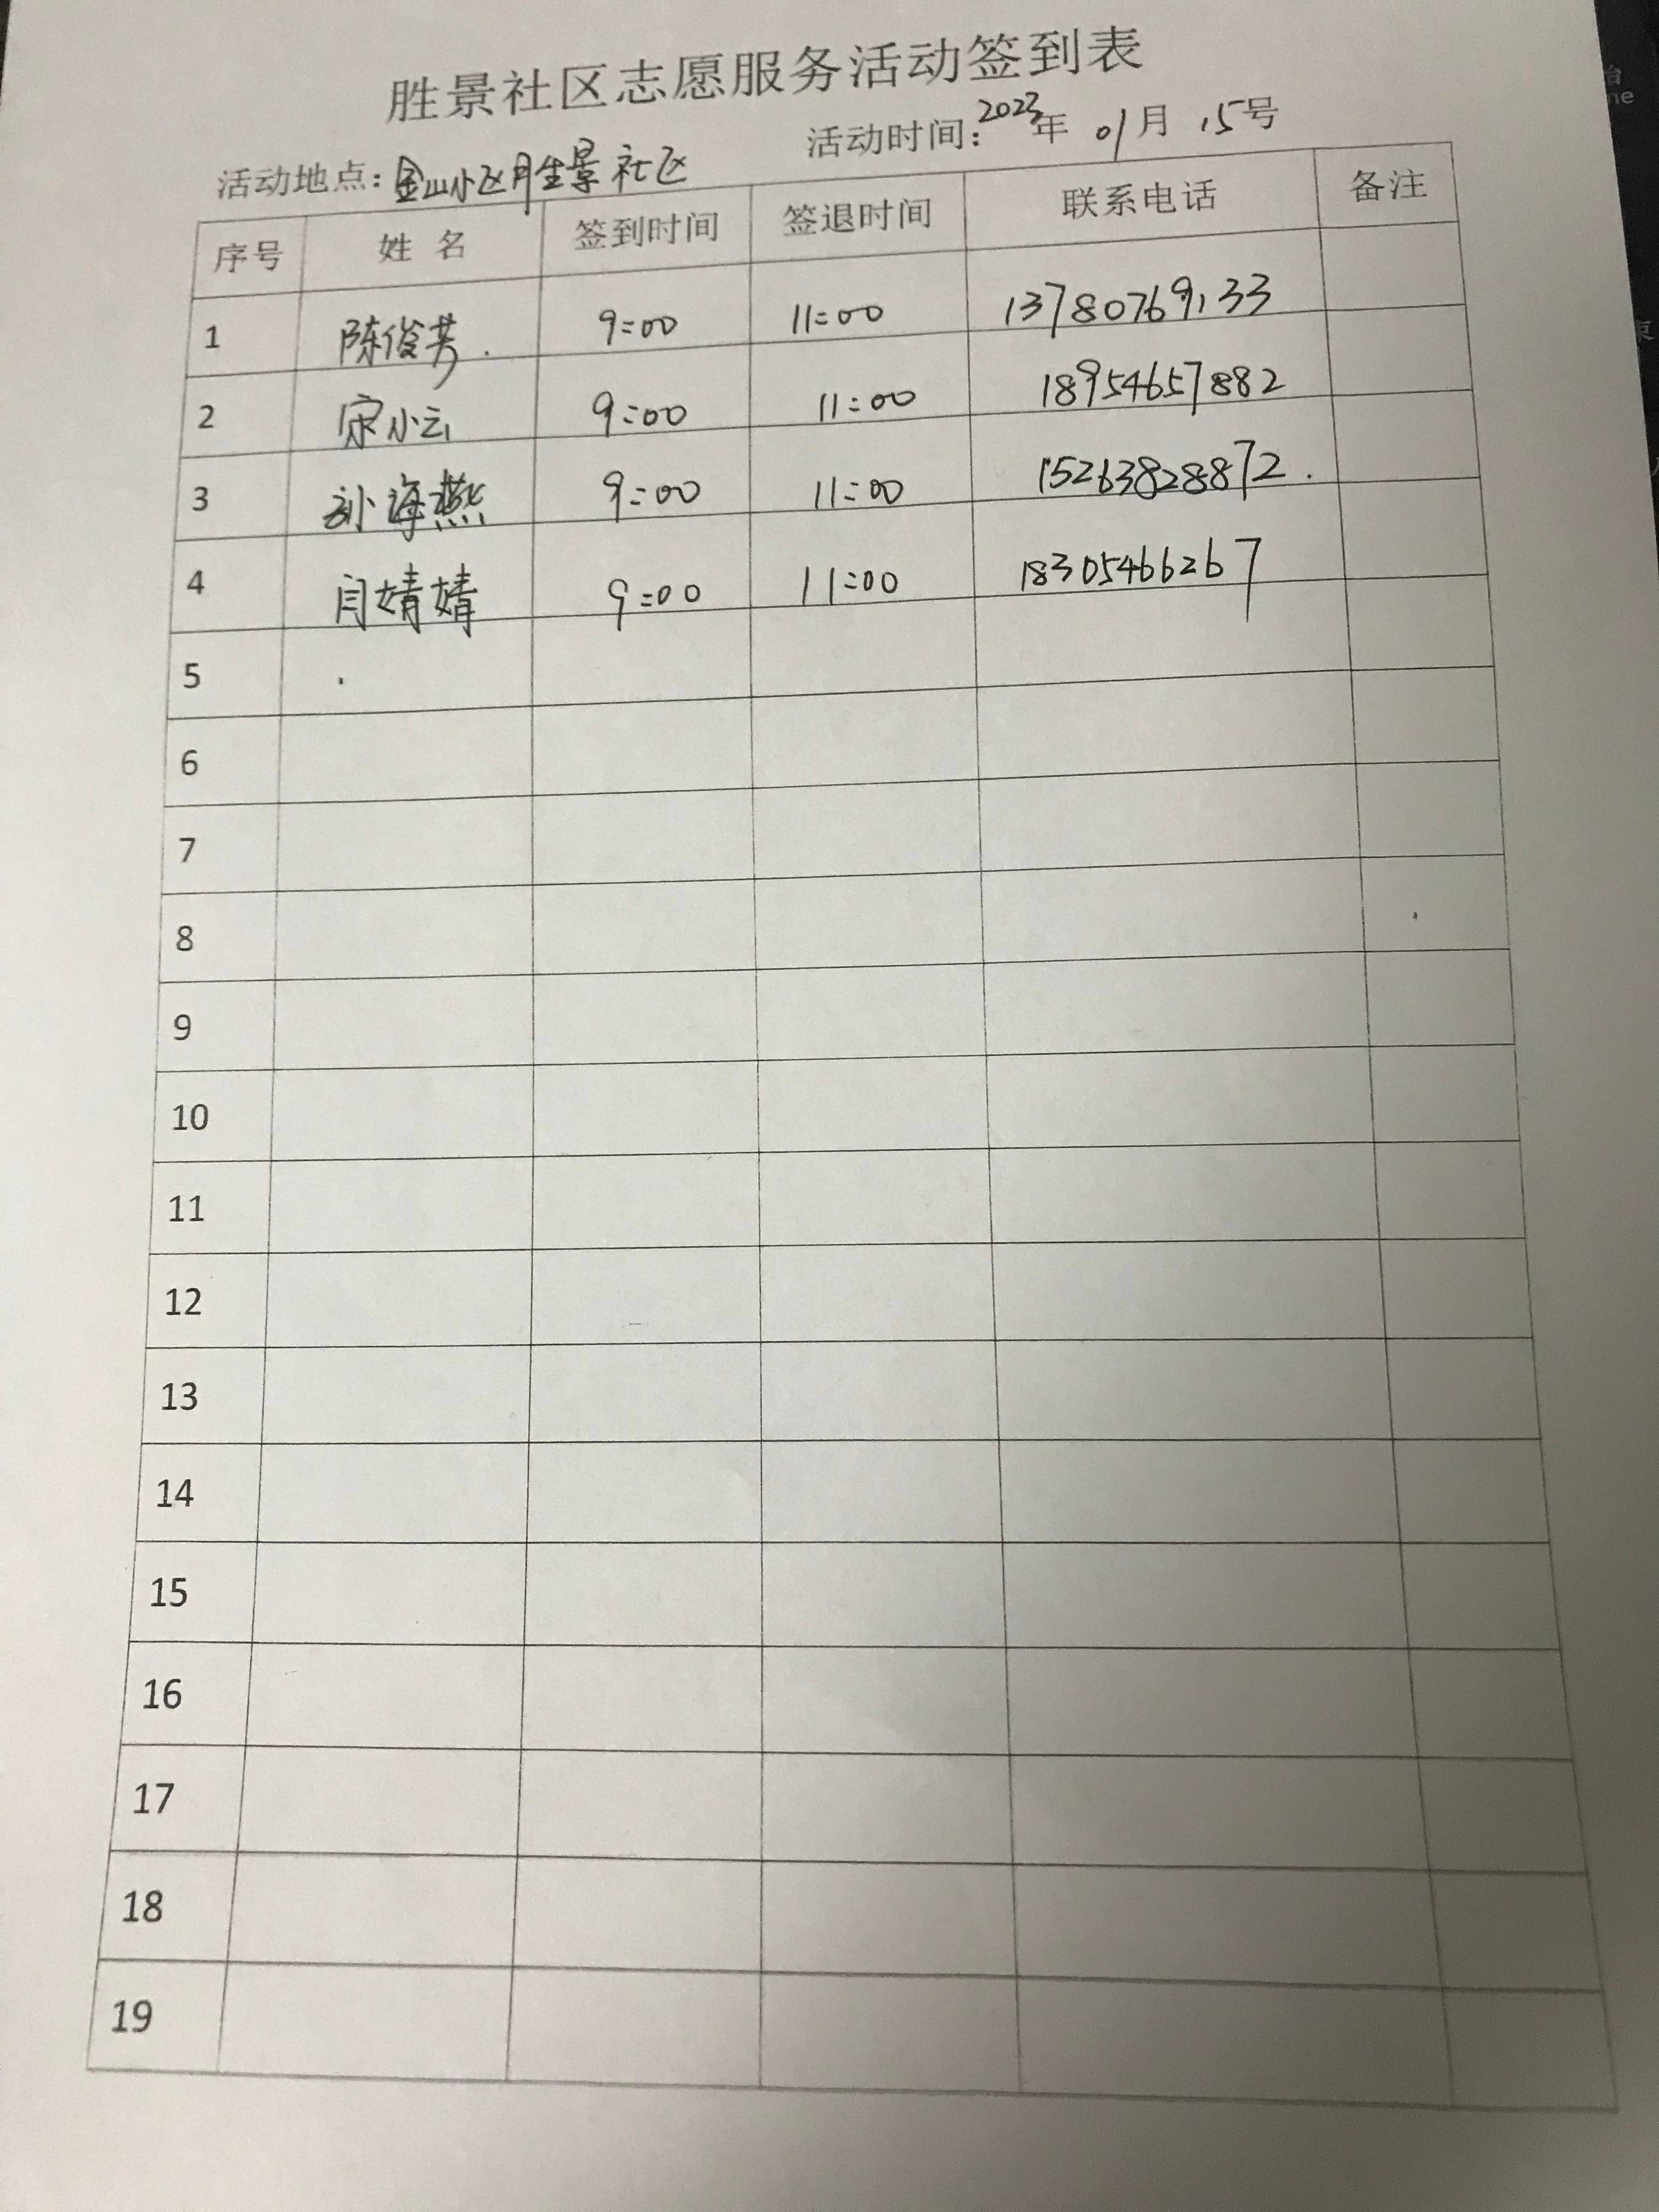 胜景社区志愿服务活动签到表
活动地点：金山小区胜景社区 活动时间：2023年 01月 15号
序号 姓 名 签到时间 签退时间 联系电话 备注
1 陈俊芳 9:00 11:00 13780769133
2 宋小云 9:00 11:00 18954657882
3 孙海燕 9:00 11:00 15263828872
4 闫婧婧 9:00 11:00 18305466267
5
6
7
8
9
10
11
12
13
14
15
16
17
18
19